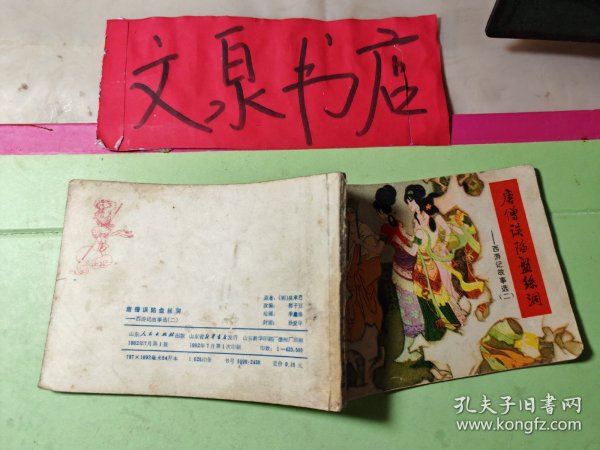 文泉书店
唐僧误陷盘丝洞
——西游记故事选(二)
唐僧误陷盘丝洞
——西游记故事选(二)
原著:(明)吴承恩
改编:
绘画:
封面:
山东人民出版社出版
山东省新华书店发行
1982年7月第1版
1982年7月第1次印刷
印数:1—623,500
787×1092毫米64开本
1.625印张
书号 8099·2438
定价 0.15元
孔夫子旧书网
www.kongfz.com